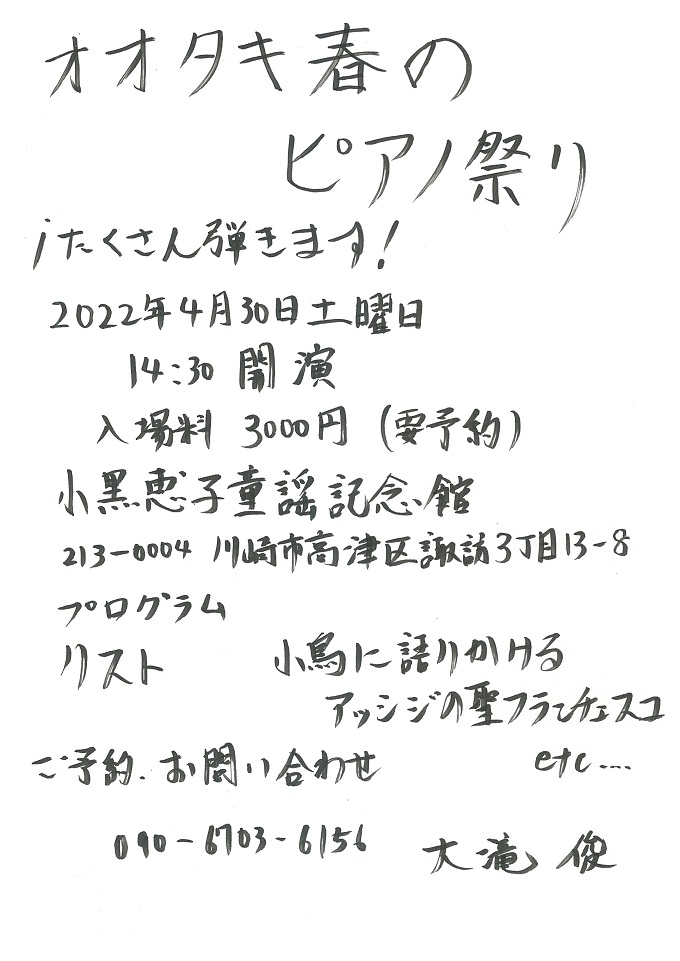 オオタキ春の
ピアノ祭り
¡たくさん弾きます!
2022年4月30日土曜日
14:30 開演
入場料 3000円 (要予約)
小黒恵子童謡記念館
213-0004 川崎市高津区諏訪3丁目13-8
プログラム
リスト 小鳥に語りかける
アッシジの聖フランチェスコ
etc....
ご予約.お問い合わせ
090-6703-6156 大滝 俊